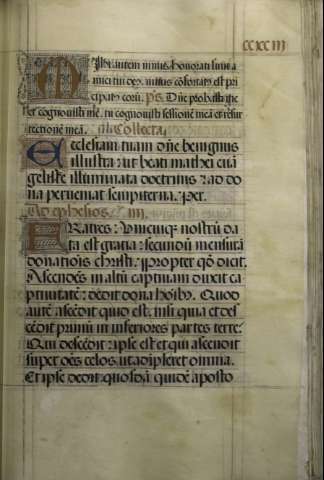 ccxciii
Mihi autem nimis honorati sunt a
mici tui de⁹. nimis cōfortat⁹ est pri
cipat⁹ eorū. p̄s. Dn̄e probasti me
et cognouisti me. tu cognouisti sessionē meā et resur
rectionē meā. Collecta
Ecclesiam tuam dn̄e benignus
illustra: ut beati mathei euā
geliste illuminata doctrinis: ad do
na perueniat sempiterna. per.
Ad ephesios. iiii.
FRatres: Vnicuiq; nostrū da
ta est gratia: secundū mensurā
donationis christi. Propter qd̄ dicit.
Ascendēs in altū captiuam duxit ca
ptiuitatē: dedit dona hoībꝫ. Quod
autē ascēdit quid est. nisi quia et des
cēdit primū in inferiores partes terre:
Qui descēdit: ipse est et qui ascendit
super oēs celos: ut adīpleret omnia.
Et ipse dedit quosdā quidē aposto